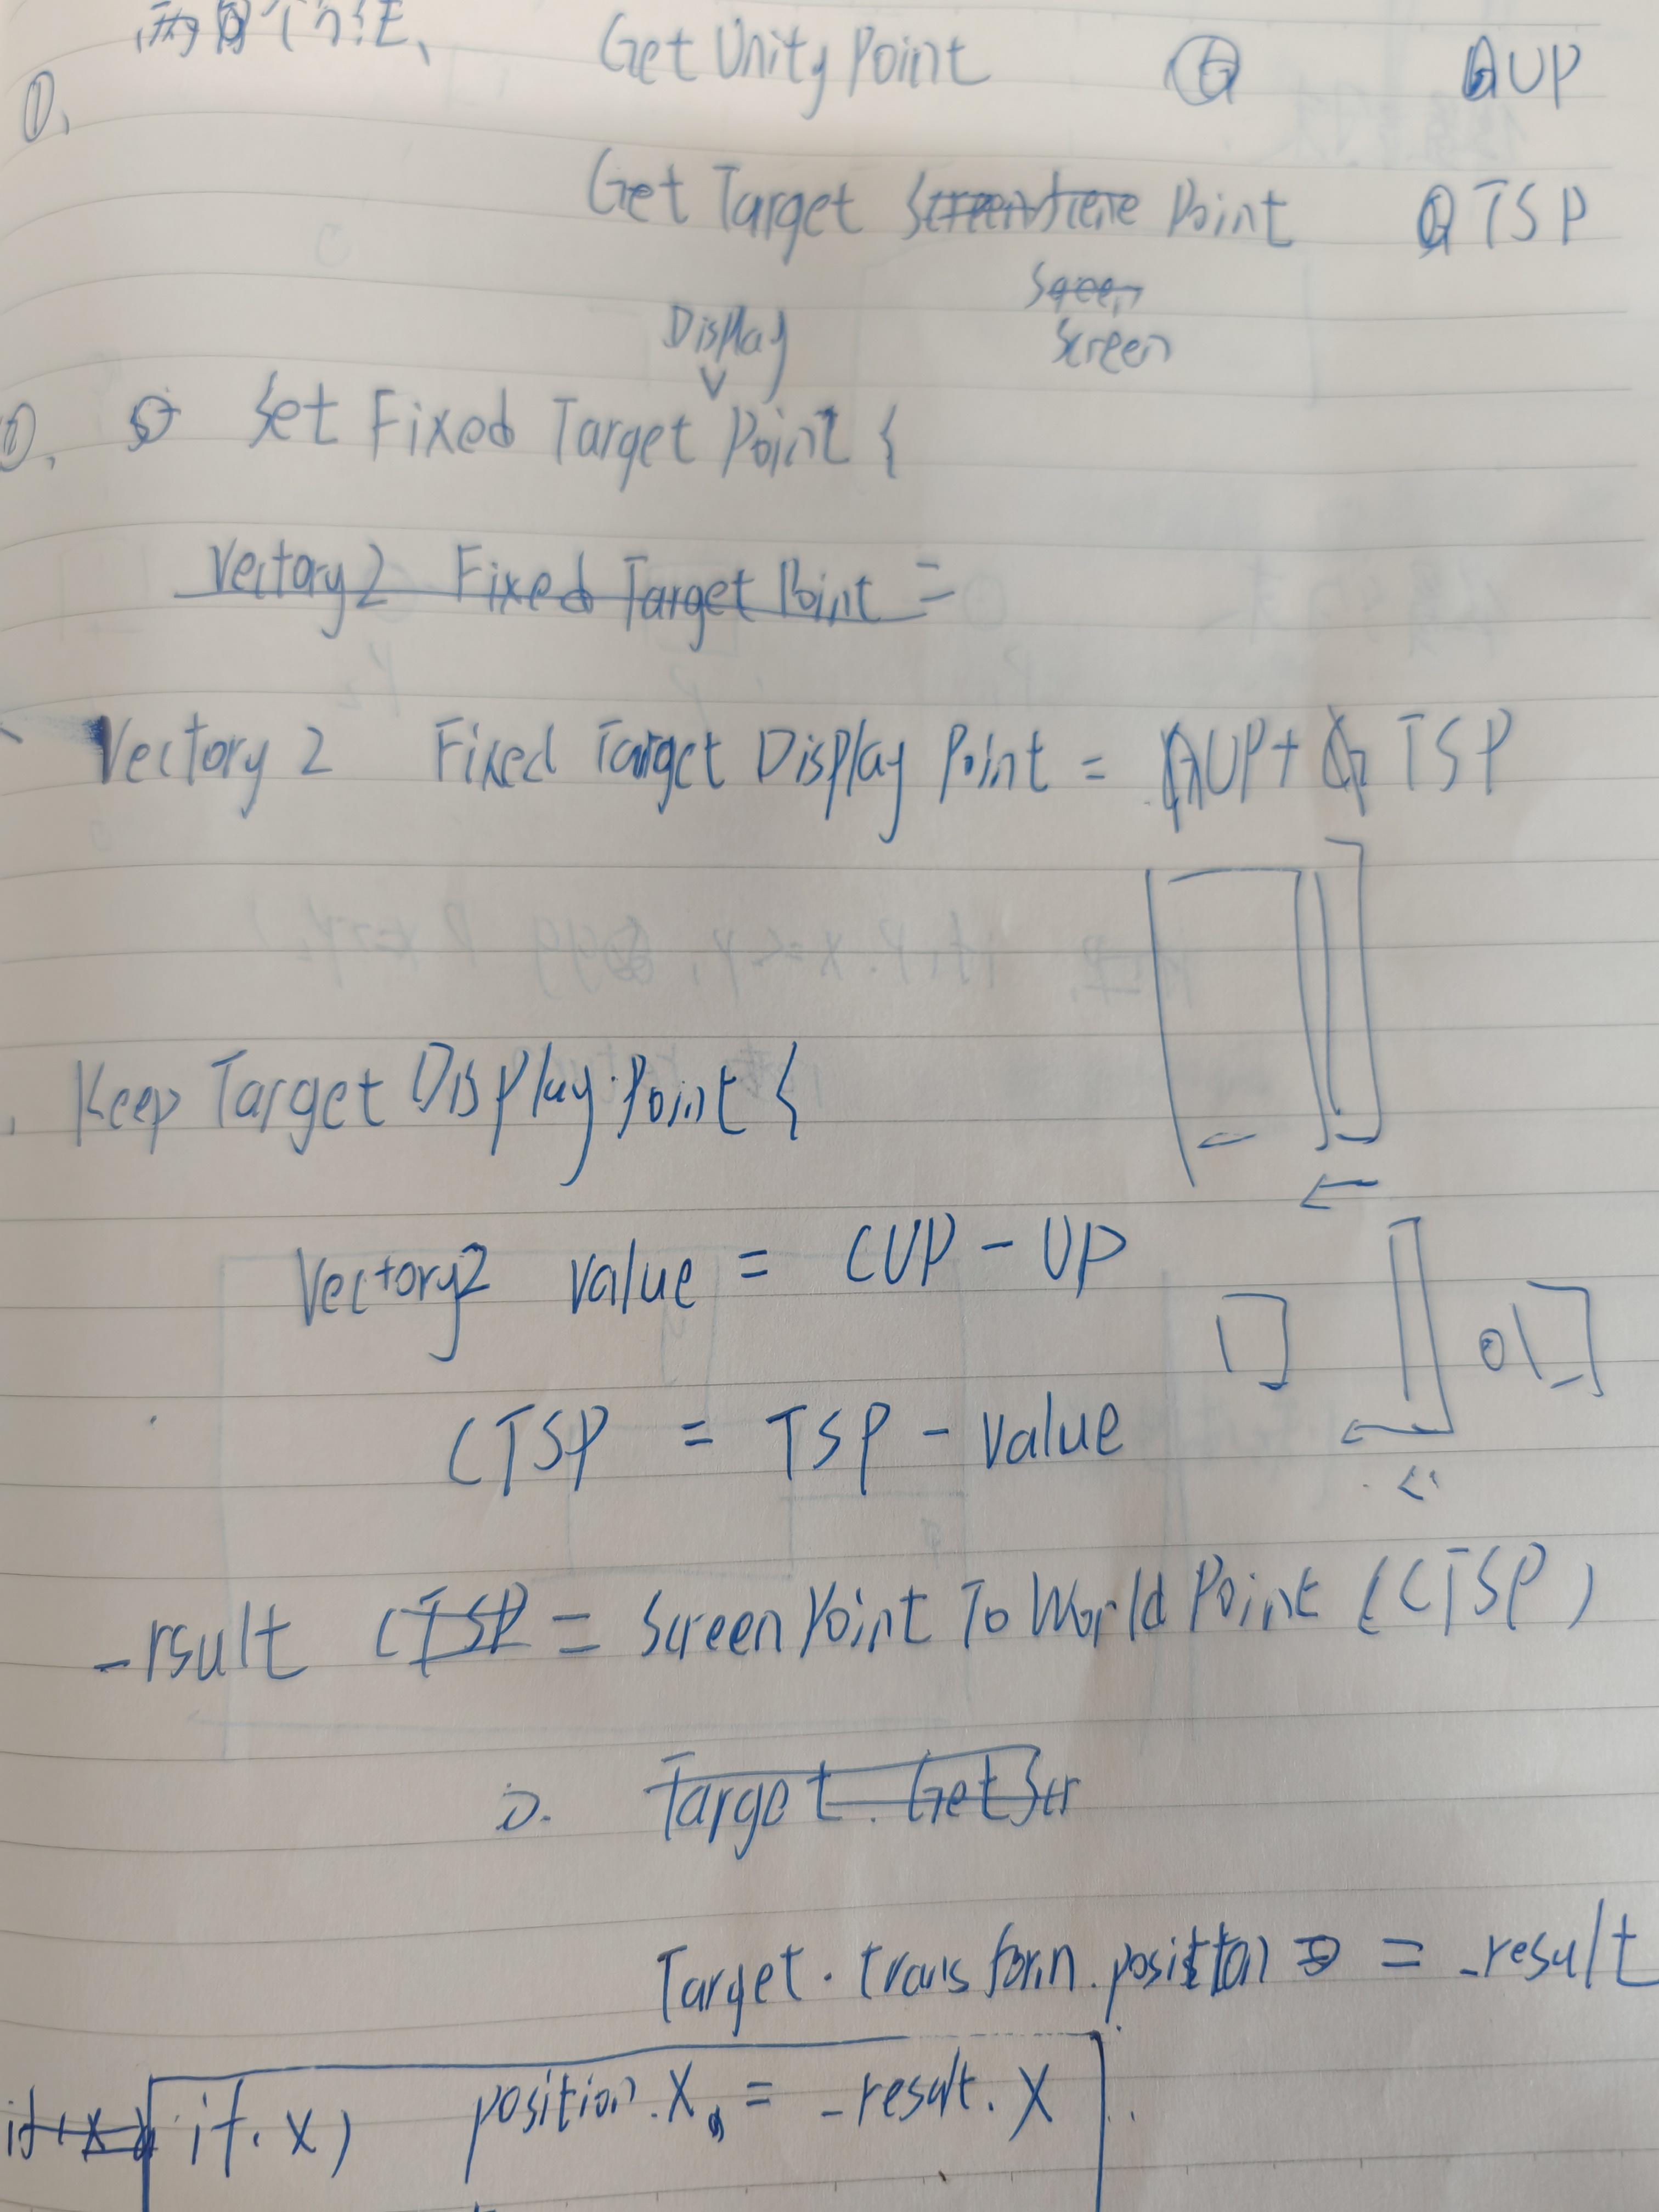 两个方法、
①. Get Unity Point G GUP
Get Target Screen Point GTSP
Screen
Display
①. Set Fixed Target Point {
Vectory2 Fixed Target Point =
Vectory 2 Fixed Target Display Point = GUP + GTSP
Keep Target Display Point {
Vectory2 value = CUP - UP
CTSP = TSP - value
_rsult CTSP = Screen Point To World Point (CTSP)
Target. GetScr
Target. transform. position = _result
if(x) if. x) position. X = _result. X